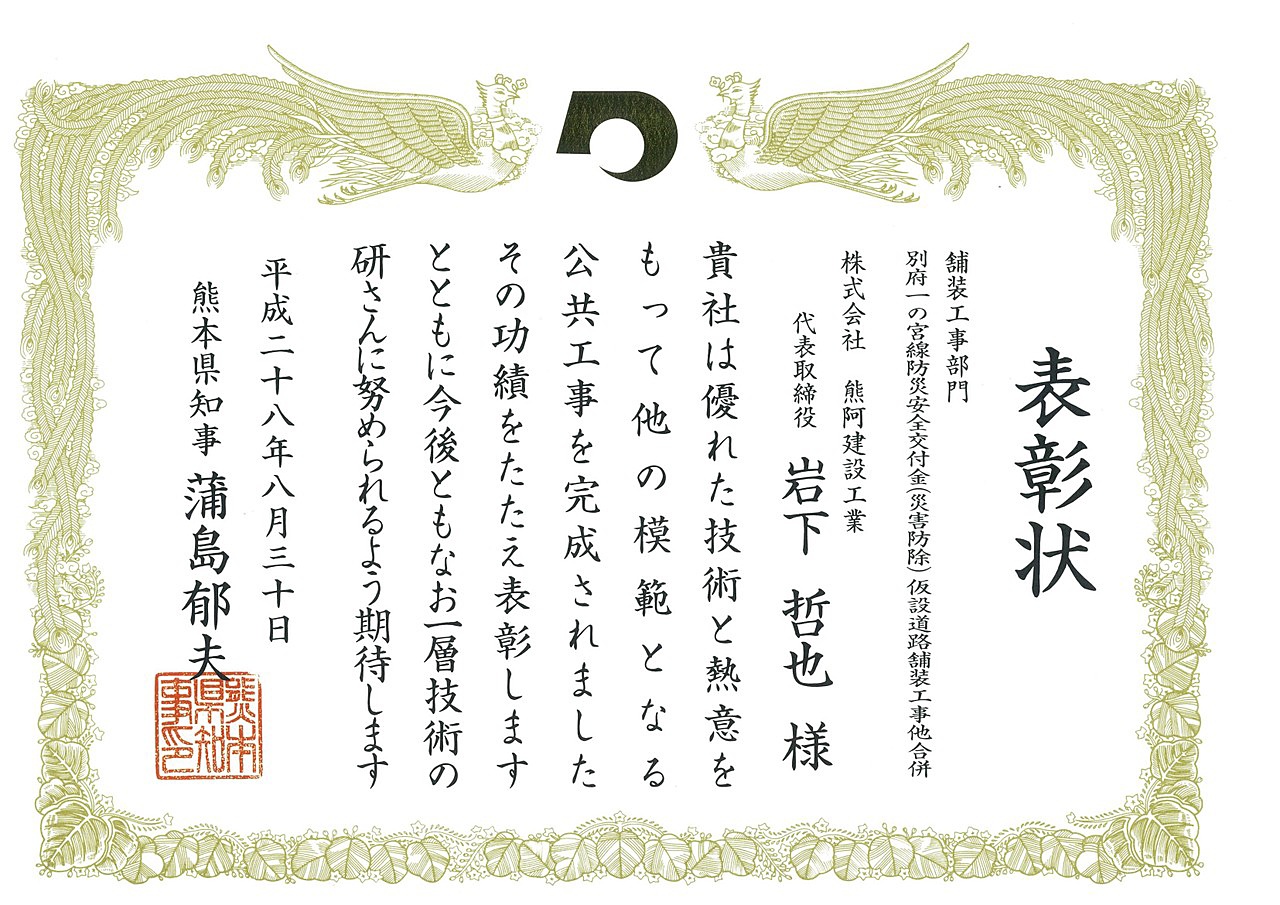 表彰状
舗装工事部門
別府一の宮線防災安全交付金(災害防除)仮設道路舗装工事他合併
株式会社 熊阿建設工業
代表取締役 岩下 哲也 様
貴社は優れた技術と熱意を
もって他の模範となる
公共工事を完成されました
その功績をたたえ表彰します
とともに今後ともなお一層技術の
研さんに努められるよう期待します
平成二十八年八月三十日
熊本県知事 蒲島郁夫
熊本県知事印